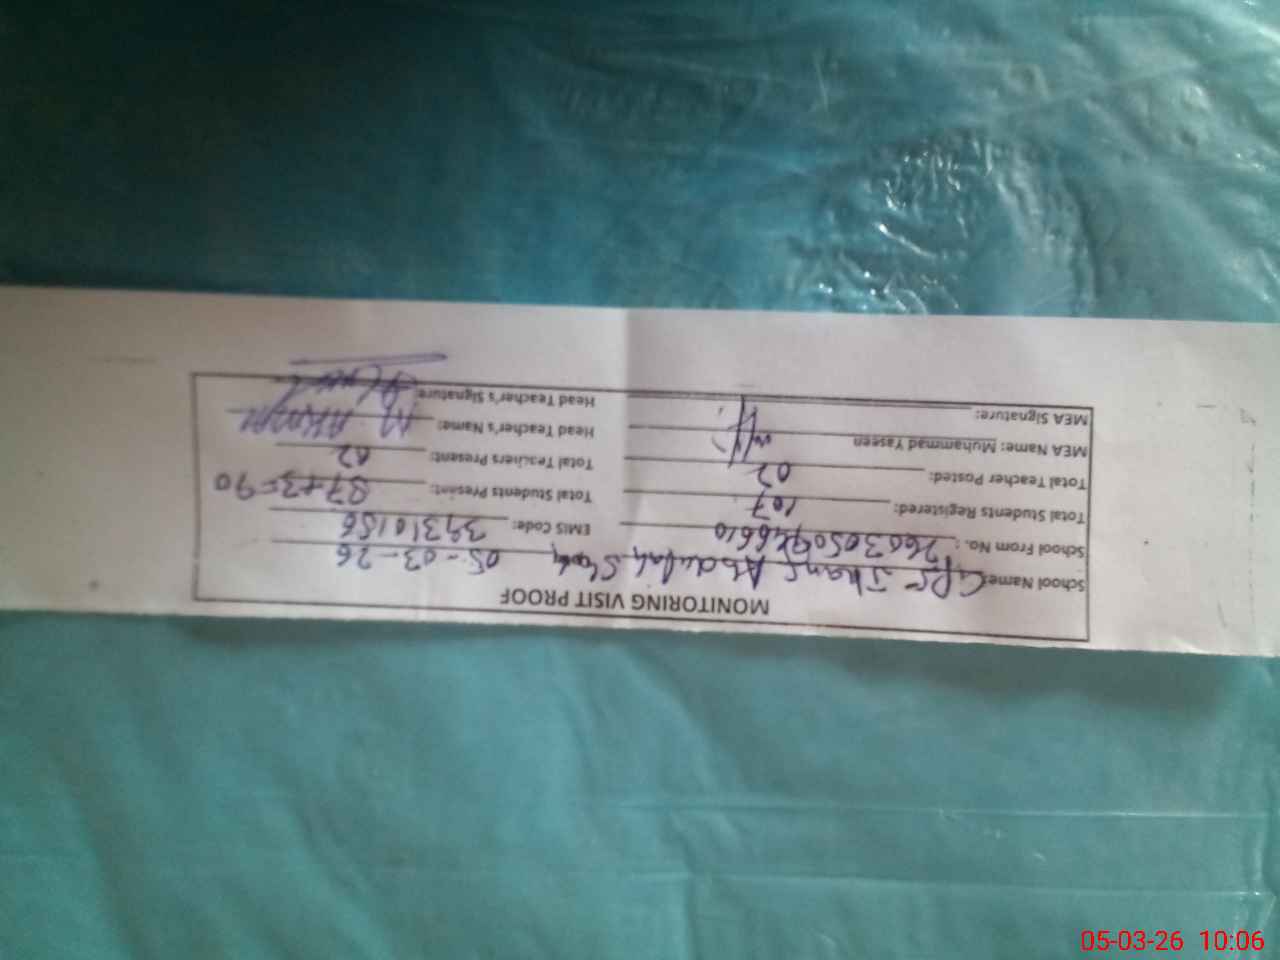 MONITORING VISIT PROOF
School Name: GPS Jhang Abdullah Shah 05-03-26
School From No. : EMIS Code: 39310156
Total Students Registered: 107 Total Students Present: 87+3=90
Total Teacher Posted: 02 Total Teachers Present: 02
MEA Name: Muhammad Yaseen Head Teacher's Name: M. AKMAL
MEA Signature: Head Teacher's Signature:
05-03-26 10:06